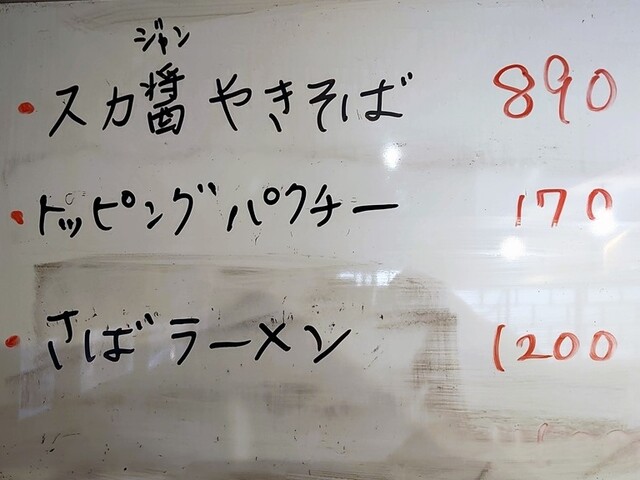 ジャン
• スカ醤やきそば 890
• トッピングパクチー 170
• さばラーメン 1200